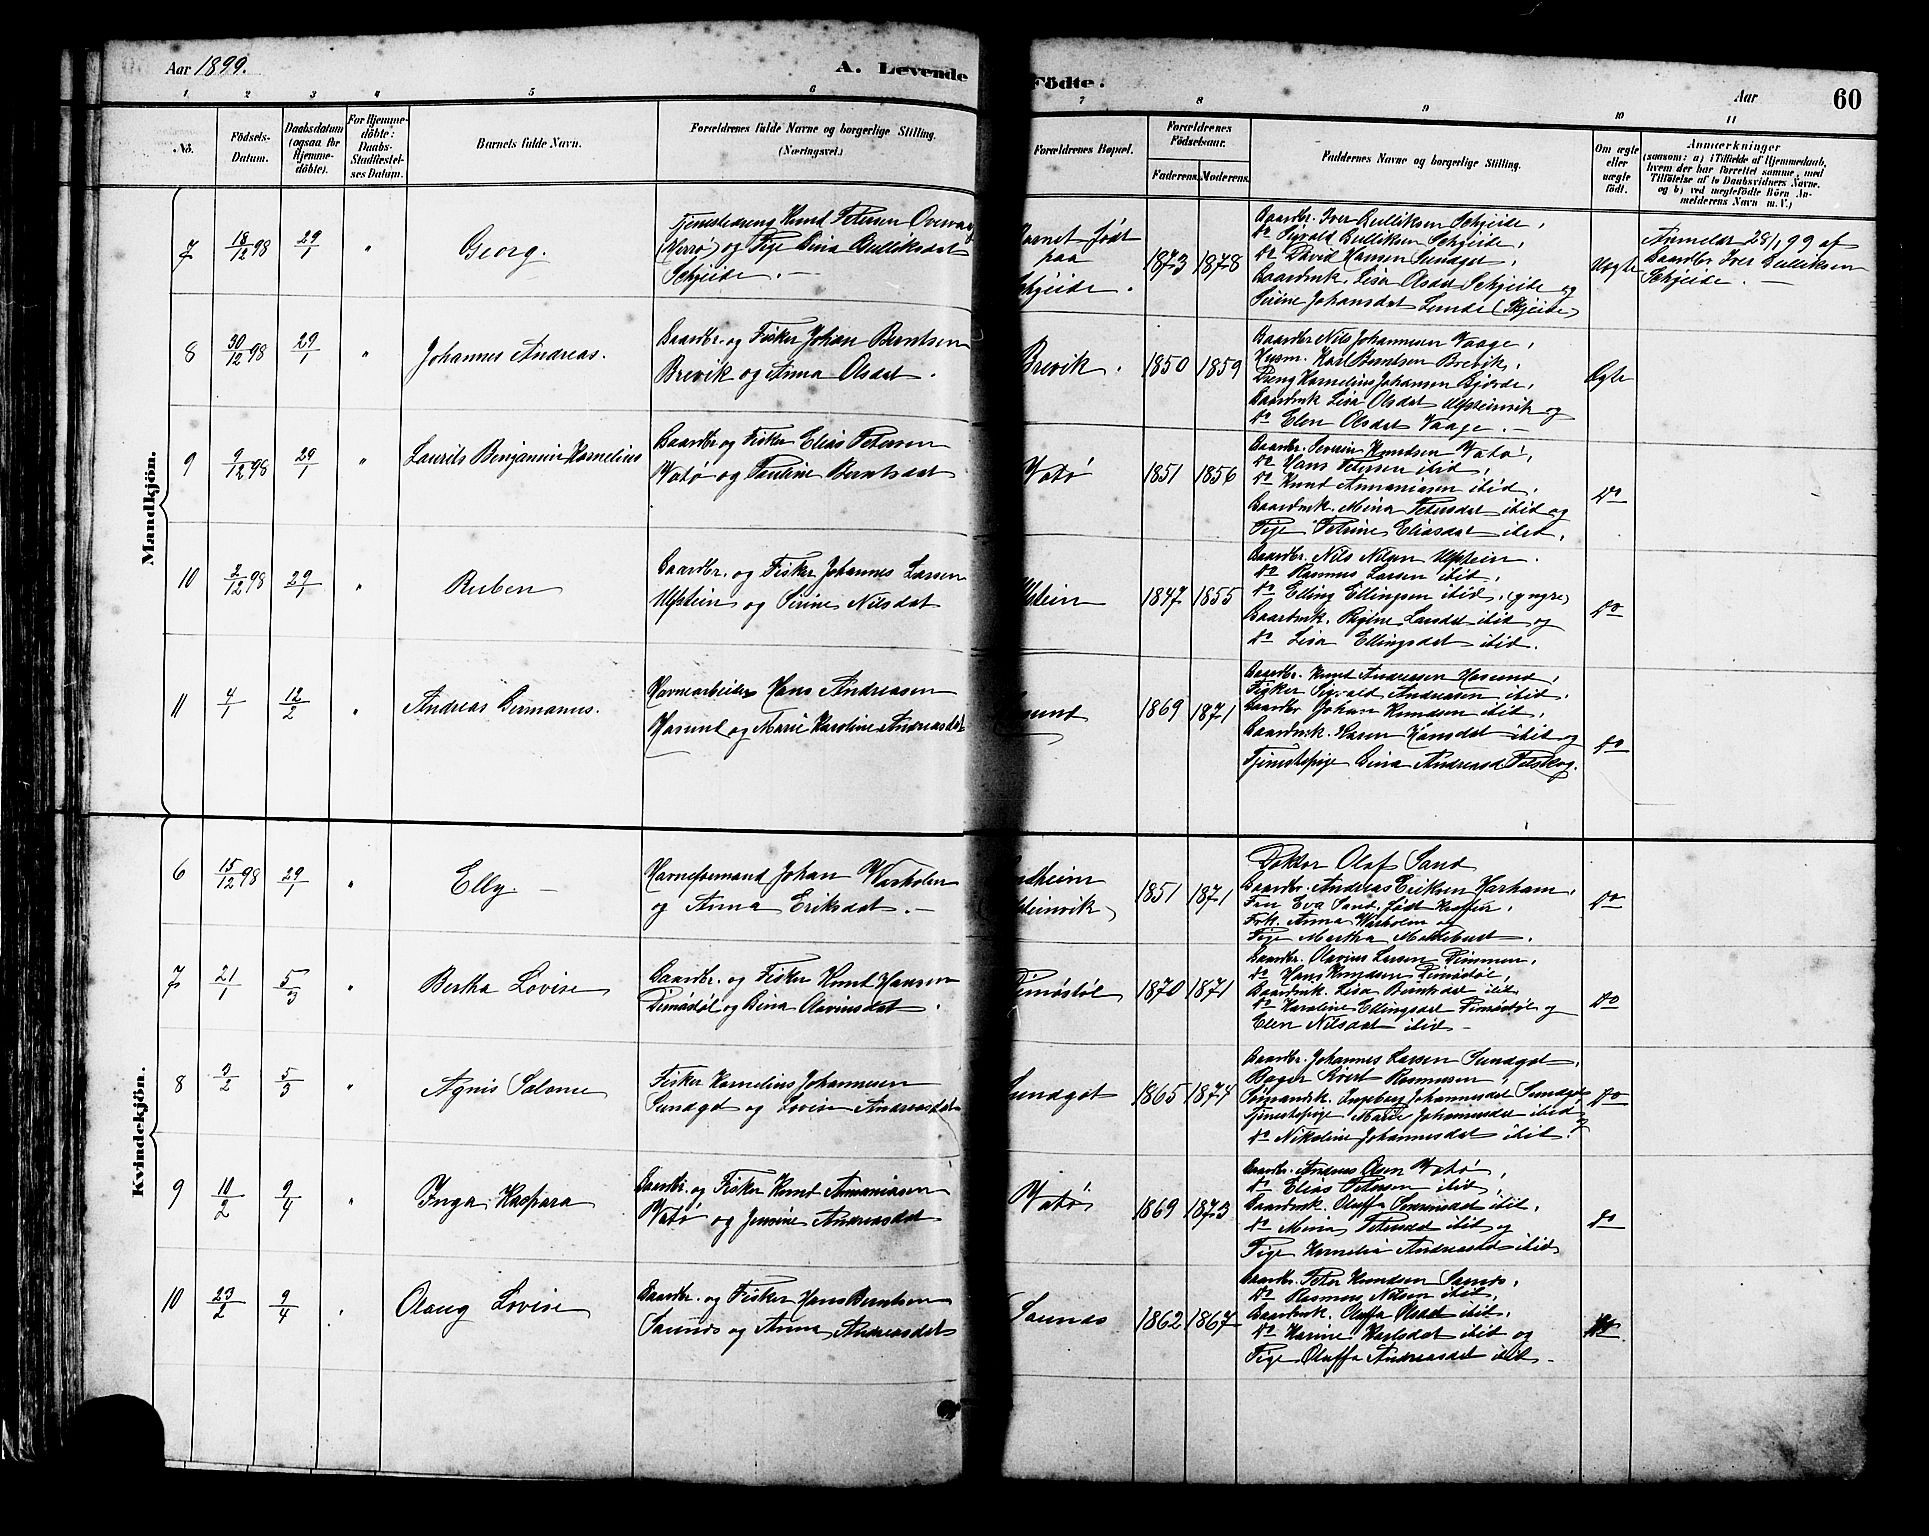 Aar 1899.
A. Levende
Födte.
Aar
60
1
2
3
4
5
6
7
8
9
10
11
No.
Födsels-
Datum.
Daabsdatum
(ogsaa for
Hjemme-
döbte).
For Hjemme-
döbte:
Daabs-
Stadfæstel-
ses Datum.
Barnets fulde Navn.
Forældrenes fulde Navne og borgerlige Stilling.
(Næringsvei.)
Forældrenes Bopæl.
Forældrenes
Födselsaar.
Faderens.
Moderens.
Faddernes Navne og borgerlige Stilling.
Om ægte
eller
uægte
födt.
Anmærkninger
(saasom: a) i Tilfælde af Hjemmedaab,
hvem der har forrettet samme, med
Tilföielse af to Daabsvidners Navne.
og b) ved uægtefödte Börn An-
melderens Navn m. V.)
Mandkjön.
7
18/12 98
29/1
"
Georg.
Tjenestedreng Knud Petersen
(Herø) og Pige Gina Bulliksdat
Schjeide. —
Barnet født
paa
Schjeide.
1873
1878
Gaardbr. Iver Bulliksen Schjeide,
do Sigvald Bulliksen Schjeide,
do David Hansen Sundgot,
Gaardmk. Lisa Olsdat Schjeide og
Serine Johansdat Lunde (Skjeide)
Uægte
Anmeldt 28/1 99 af
Gaardbr Iver Bulliksen
Schjeide. —
8
30/12 98
29/1
"
Johannes Andreas.
Gaardbr. og Fisker Johan Berntsen
Brevik og Anna Olsdat.
Brevik.
1850
1859
Gaardbr Nils Johannesen Vaage,
Husm. Karl Berntsen Brevik,
Dreng Kornelius Johansen Gjørde,
Gaardmk Lisa Olsdat Ulfsteinvik og
do Elen Olsdat Vaage. —
Ægte
9
9/12 98
29/1
"
Laurits Benjamin Kornelius
Gaardbr og Fisker Elias Petersen
Vatø og Pauline Berntsdat
Vatø
1851
1856
Gaardbr. Severin Knudsen Vatø,
do Hans Petersen ibid,
do Knud Annaniasen ibid,
Gaardmk. Mina Petersdat ibid og
Pige Petrine Eliasdat ibid.
do
10
2/12 98
29/1
"
Ruben
Gaardbr. og Fisker Johannes Larsen
Ulfstein og Serine Nilsdat
Ulfstein
1847
1855
Gaardbr. Nils Nilsen Ulfstein.
do Rasmus Larsen ibid,
do Elling Ellingsen ibid, (yngre)
Gaardmk. Regine Larsdat ibid og
do Lisa Ellingsdat ibid.
do
11
4/1
12/2
"
Andreas Germanus.
Havnearbeider Hans Andreasen
Hasund og Marie Karoline Andreasdat
Hasund
1869
1871
Gaardbr. Knud Andreasen Hasund,
Fisker Sigvald Andreasen ibid.
Gaardbr Johan Knudsen ibid,
Gaardmk. Karen Hansdat ibid og
Tjenestepige Gina Andreasd
do
Kvindekjön.
6
15/12 98
29/1
"
Elly —
Havneformand Johan Warholm
og Anna Eriksdat. —
1851
1871
Doktor Olaf Sand
Gaardbr. Andreas Eriksen Harham,
Fru Eva Sand, født
Frk. Anna Warholm og
Pige Martha
do
7
21/1
5/3
"
Bertha Lovise
Gaardbr. og Fisker Knut Hansen
Dimøstøl og Gina Olaviusdat.
Dimøstøl
1870
1871
Gaardbr. Olavius Larsen Dimmen,
do Hans Knudsen Dimøstøl,
Gaardmk. Lisa Berntsdat ibid
do Karoline Ellingsdat Dimøstøl og
Elen Nilsdat ibid —
do
8
3/2
5/3
"
Agnis Salomee
Fisker Kornelius Johannesen
Sundgot og Lovise Andreasdat
Sundgot
1865
1874
Gaardbr. Johannes Larsen Sundgot,
Bager Sivert Rasmusen,
Ingeborg Johannesdat Sundgot
Tjenestepige Marie Johannesdat ibid
do Nikoline Johannesdat ibid.
do
9
10/2
9/4
"
Inga Kaspara
Gaardbr. og Fisker Knut Annaniasen
Vatø og Jensine Andreasdat
Vatø
1869
1873
Gaardbr. Andreas Olsen Vatø,
do Elias Petersen ibid,
Gaardmk. Oluffa ibid,
do Mina Petersdat og
Pige Kornelia Andreasd ibid
do
10
23/2
9/4
"
Olaug Lovise
Gaardbr. og Fisker Hans Berntsen
Saunes og Anna Andreasdat
Saunes
1862
1867
Gaardbr. Peter Knudsen Saunes,
do Rasmus Nilsen ibid,
Gaardmk. Oluffa Olsdat ibid,
do Karine Karlsdat ibid og
Pige Oluffa Andreasdat ibid —
do